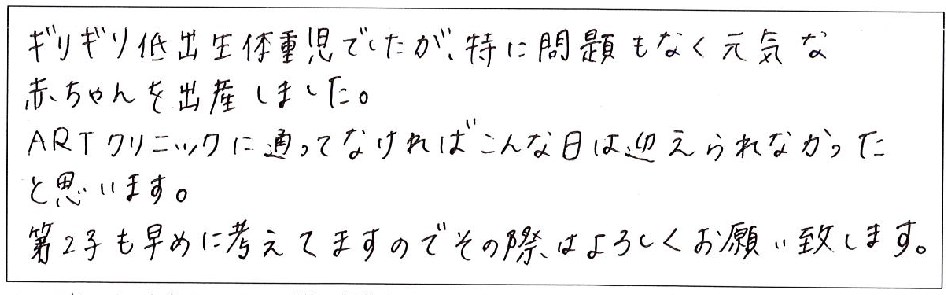 ギリギリ低出生体重児でしたが、特に問題もなく元気な
赤ちゃんを出産しました。
ARTクリニックに通ってなければこんな日は迎えられなかった
と思います。
第2子も早めに考えてますのでその際はよろしくお願い致します。